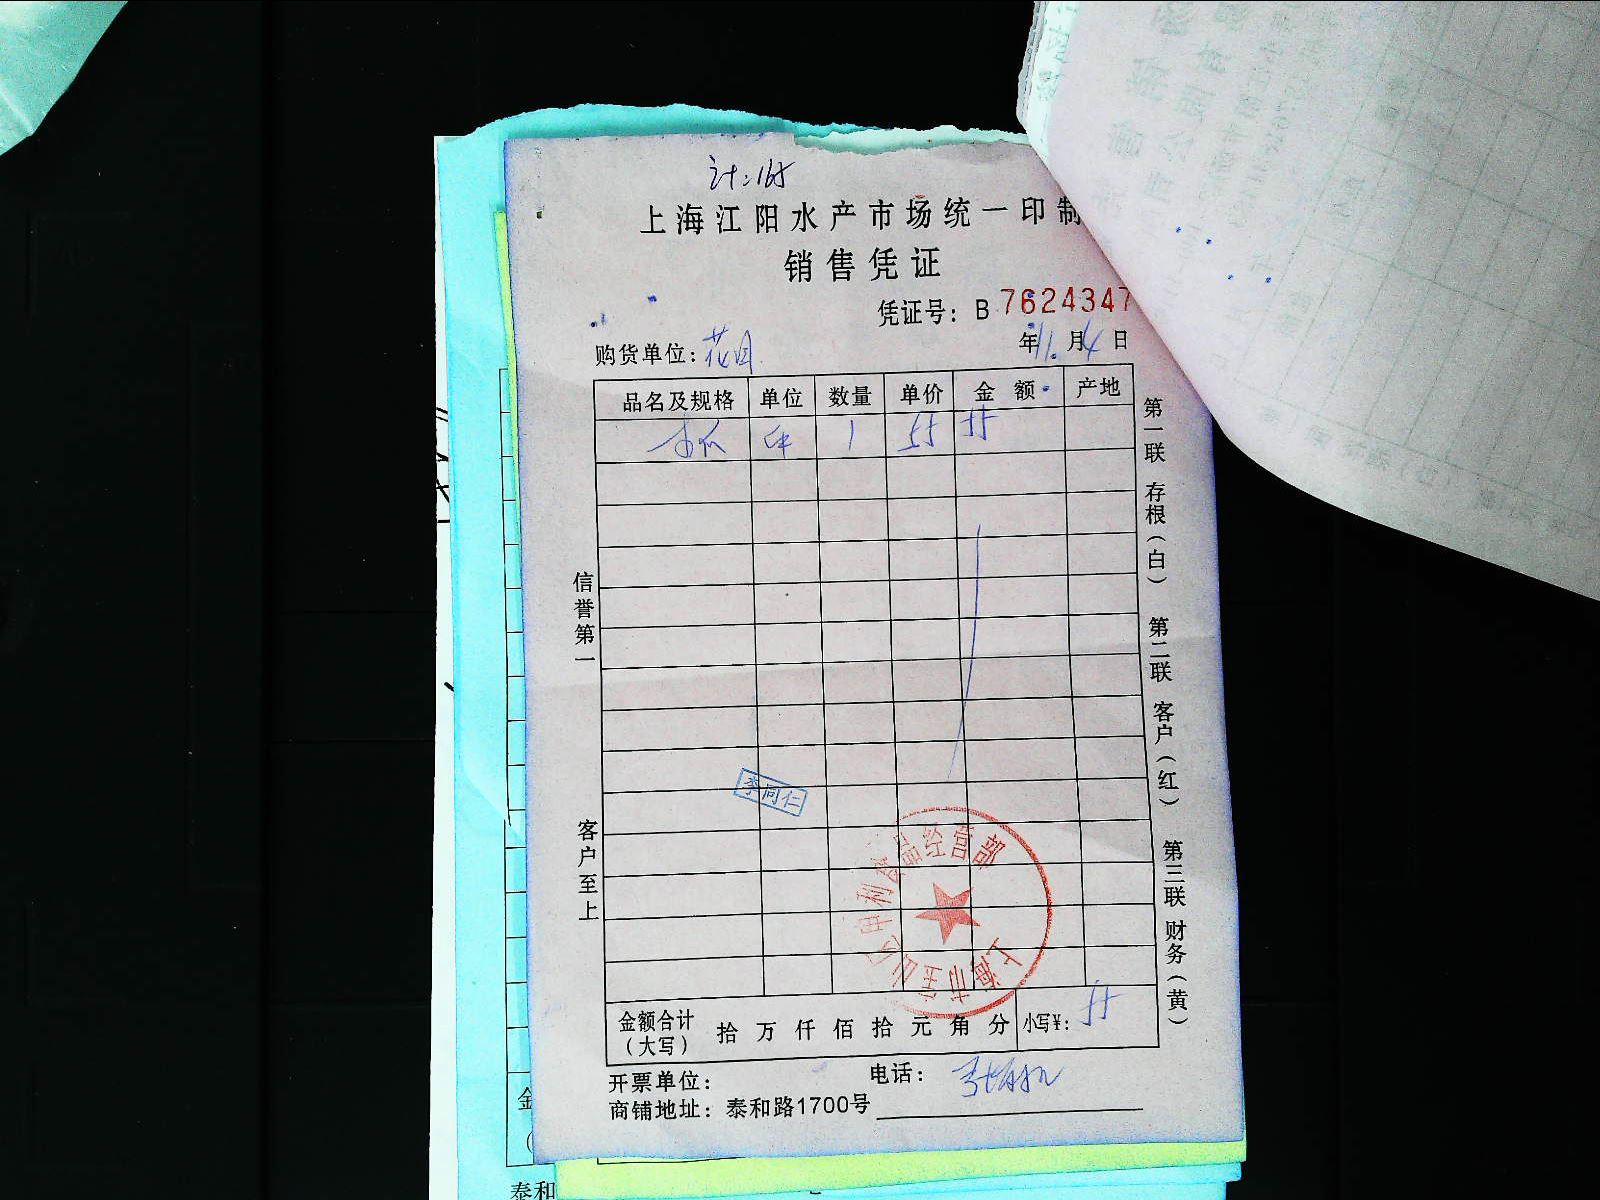 计:165
上海江阳水产市场统一印制
销售凭证
凭证号：B 7624347
购货单位：花月 年11.月4日
品名及规格 单位 数量 单价 金额 产地
木瓜 件 1 55 55
信誉第一
客户至上
第一联 存根（白） 第二联 客户（红） 第三联 财务（黄）
李同仁
上海市宝山区申利食品经营部
金额合计（大写） 拾万仟佰拾元角分 小写¥：55
开票单位： 电话：
商铺地址：泰和路1700号
金
泰和